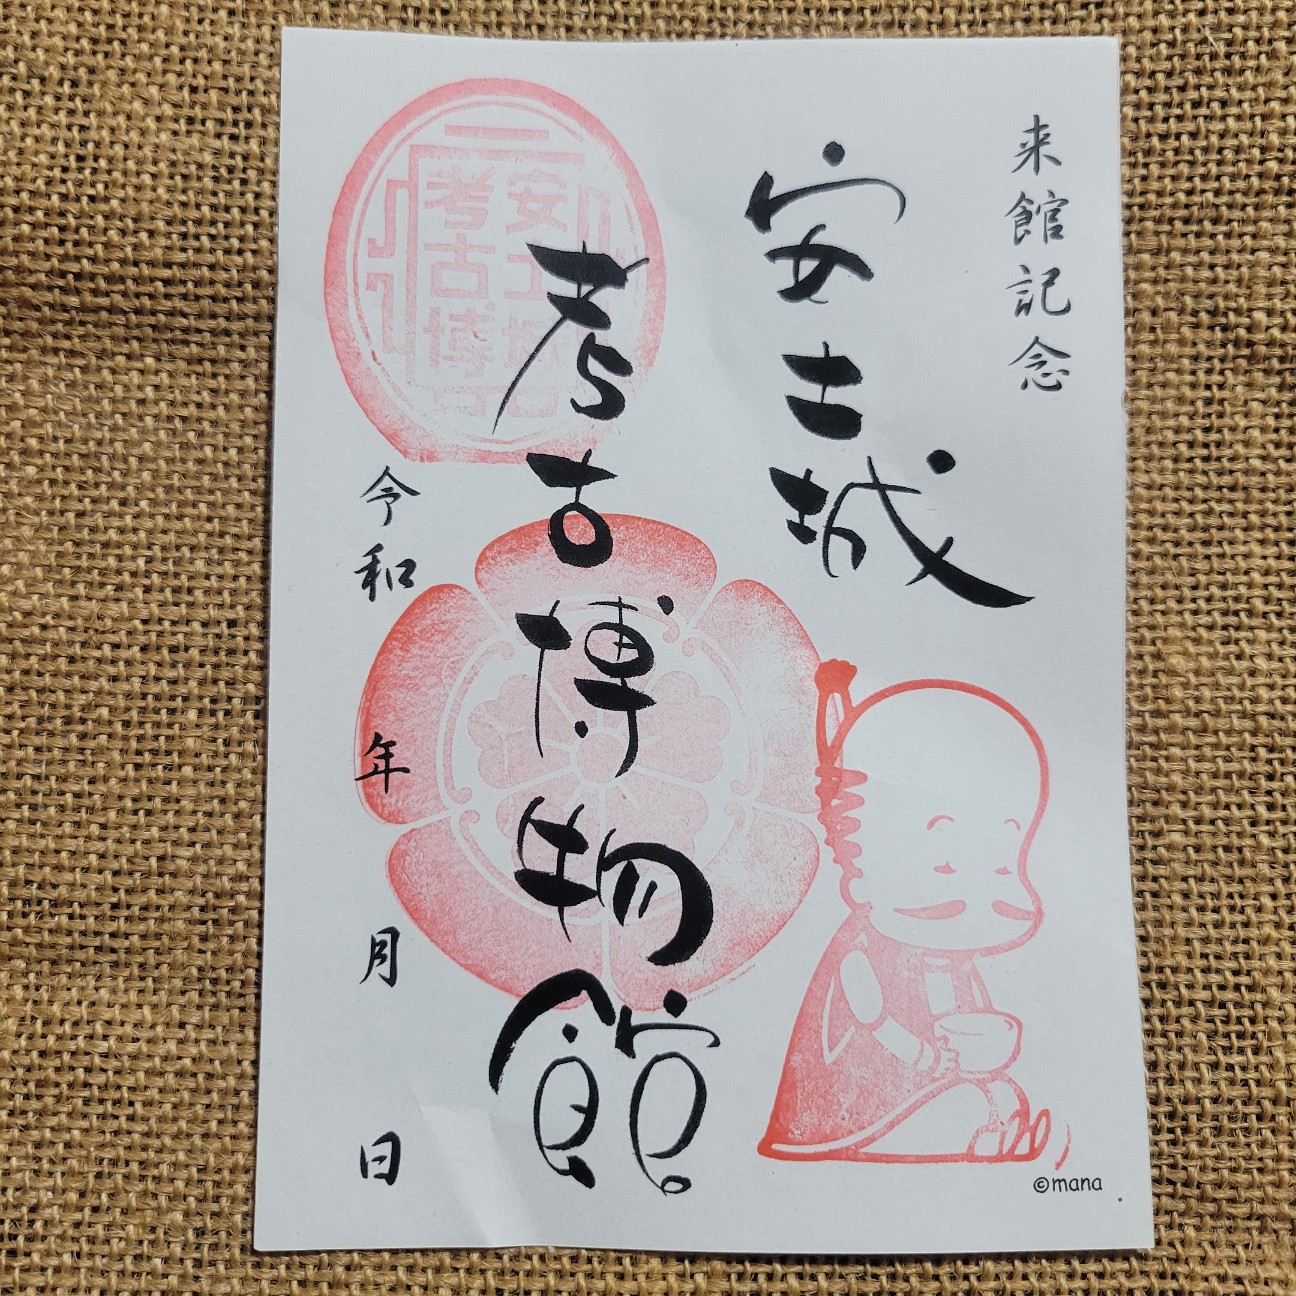 来館記念
安土城
考古博物館
安土城
考古博
令和 年 月 日
©mana